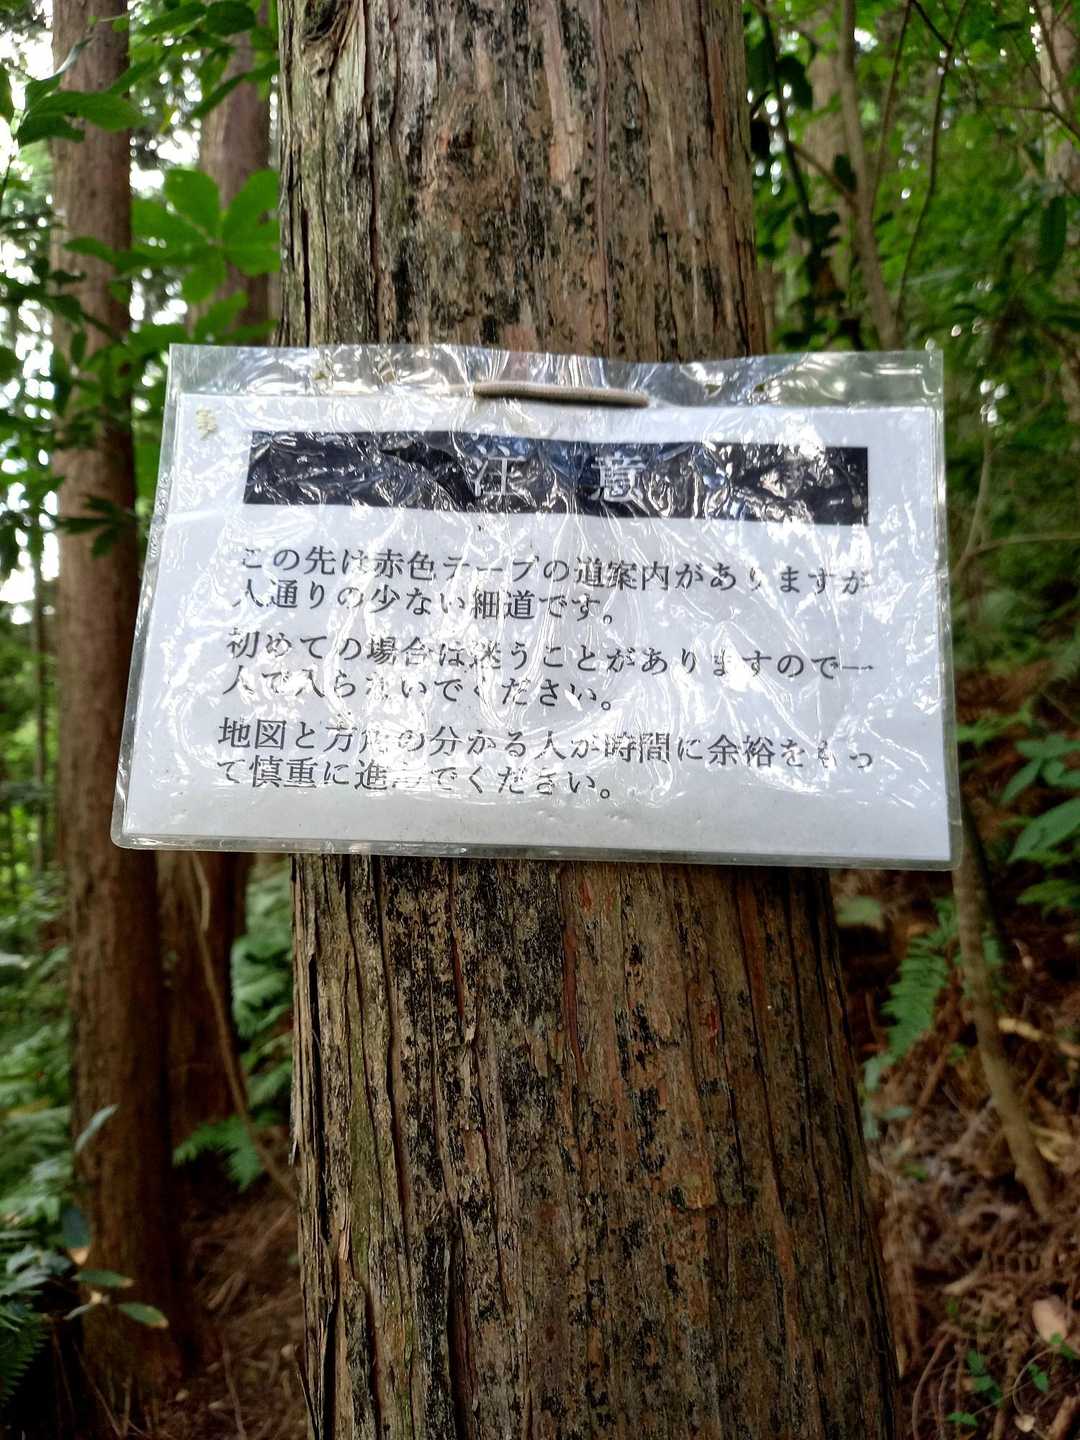 注 意
この先は赤色テープの道案内がありますが
人通りの少ない細道です。
初めての場合は迷うことがありますので一
人で入らないでください。
地図と方角の分かる人が時間に余裕をもっ
て慎重に進んでください。